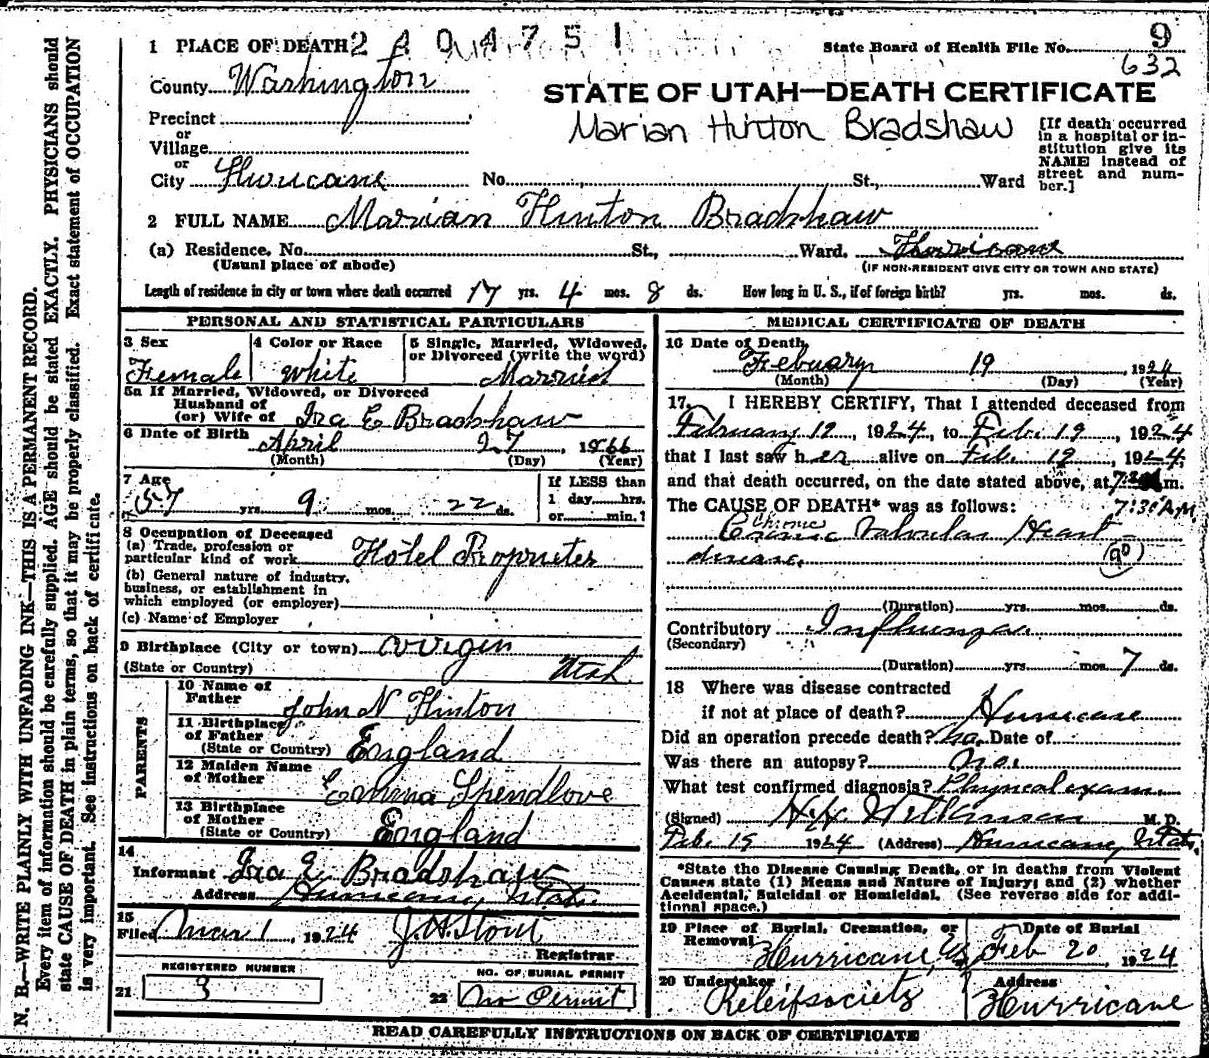 N. B.—WRITE PLAINLY WITH UNFADING INK—THIS IS A PERMANENT RECORD.
Every item of information should be carefully supplied. AGE should be stated EXACTLY. PHYSICIANS should
state CAUSE OF DEATH in plain terms, so that it may be properly classified. Exact statement of OCCUPATION
is very important. See instructions on back of certificate.
1 PLACE OF DEATH
State Board of Health File No. 9
632
County Washington
STATE OF UTAH—DEATH CERTIFICATE
Precinct
or
Village
Marian Hinton Bradshaw
[If death occurred
in a hospital or in-
stitution give its
NAME instead of
street and num-
ber.]
or
City Hurricane No. St., Ward
2 FULL NAME Marian Hinton Bradshaw
(a) Residence, No. St., Ward, Hurricane
(Usual place of abode) (IF NON-RESIDENT GIVE CITY OR TOWN AND STATE)
Length of residence in city or town where death occurred 17 yrs. 4 mos. 8 ds. How long in U. S., if of foreign birth? yrs. mos. ds.
PERSONAL AND STATISTICAL PARTICULARS
3 Sex 4 Color or Race 5 Single, Married, Widowed,
or Divorced (write the word)
Female White Married
5a If Married, Widowed, or Divorced
Husband of
(or) Wife of Ira E Bradshaw
6 Date of Birth April 27, 1866
(Month) (Day) (Year)
7 Age
57 yrs. 9 mos. 22 ds.
If LESS than
1 day hrs.
or min.?
8 Occupation of Deceased
(a) Trade, profession or
particular kind of work Hotel Proprieter
(b) General nature of industry,
business, or establishment in
which employed (or employer)
(c) Name of Employer
9 Birthplace (City or town) Virgin
(State or Country) Utah
PARENTS
10 Name of
Father John N Hinton
11 Birthplace
of Father
(State or Country) England
12 Maiden Name
of Mother Emma Spendlove
13 Birthplace
of Mother
(State or Country) England
14
Informant Ira E Bradshaw
Address Hurricane, Utah
15
Filed Mar 1, 1924 J. H. Stout
Registrar
REGISTERED NUMBER
21 9
NO. OF BURIAL PERMIT
22 No Permit
MEDICAL CERTIFICATE OF DEATH
16 Date of Death
Febuary 19, 1924
(Month) (Day) (Year)
17. I HEREBY CERTIFY, That I attended deceased from
February 12, 1924, to Feb. 19, 1924
that I last saw her alive on Feb. 19, 1924,
and that death occurred, on the date stated above, at 7:30 m.
7:30 A.M.
The CAUSE OF DEATH* was as follows:
Chronic
Valvular Heart
disease.
90
(Duration) yrs. mos. ds.
Contributory Influenza.
(Secondary)
(Duration) yrs. mos 7 ds.
18 Where was disease contracted
if not at place of death? Hurricane
Did an operation precede death? No. Date of
Was there an autopsy? No.
What test confirmed diagnosis? Physical exam.
(Signed) Wilkinson M. D.
Feb. 19 1924 (Address) Hurricane, Utah.
*State the Disease Causing Death, or in deaths from Violent
Causes state (1) Means and Nature of Injury; and (2) whether
Accidental, Suicidal or Homicidal. (See reverse side for addi-
tional space.)
19 Place of Burial, Cremation, or
Removal
Date of Burial
Hurricane, U. Feb 20, 1924
20 Undertaker Address
Releifsociety Hurricane
READ CAREFULLY INSTRUCTIONS ON BACK OF CERTIFICATE